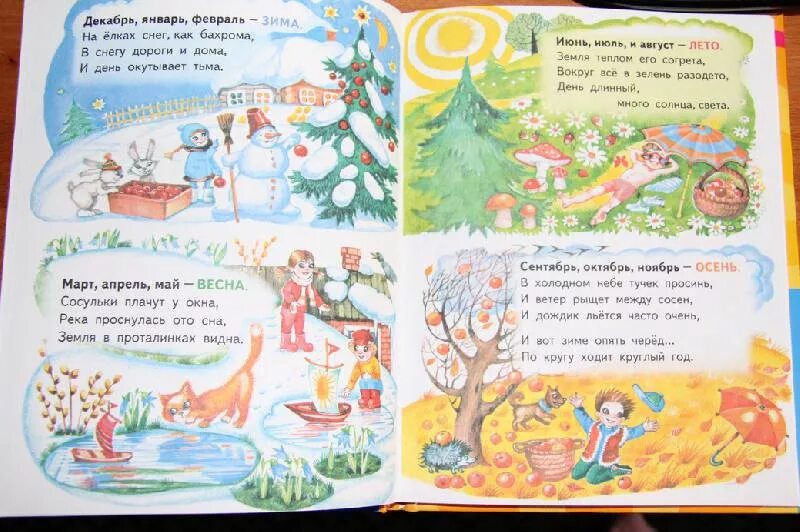 Декабрь, январь, февраль – ЗИМА.
На ёлках снег, как бахрома,
В снегу дороги и дома,
И день окутывает тьма.
Март, апрель, май – ВЕСНА.
Сосульки плачут у окна,
Река проснулась ото сна,
Земля в проталинках видна.
Июнь, июль, и август – ЛЕТО.
Земля теплом его согрета,
Вокруг всё в зелень разодето,
День длинный,
много солнца, света.
Сентябрь, октябрь, ноябрь – ОСЕНЬ.
В холодном небе тучек просинь,
И ветер рыщет между сосен,
И дождик льётся часто очень,
И вот зиме опять черёд...
По кругу ходит круглый год.